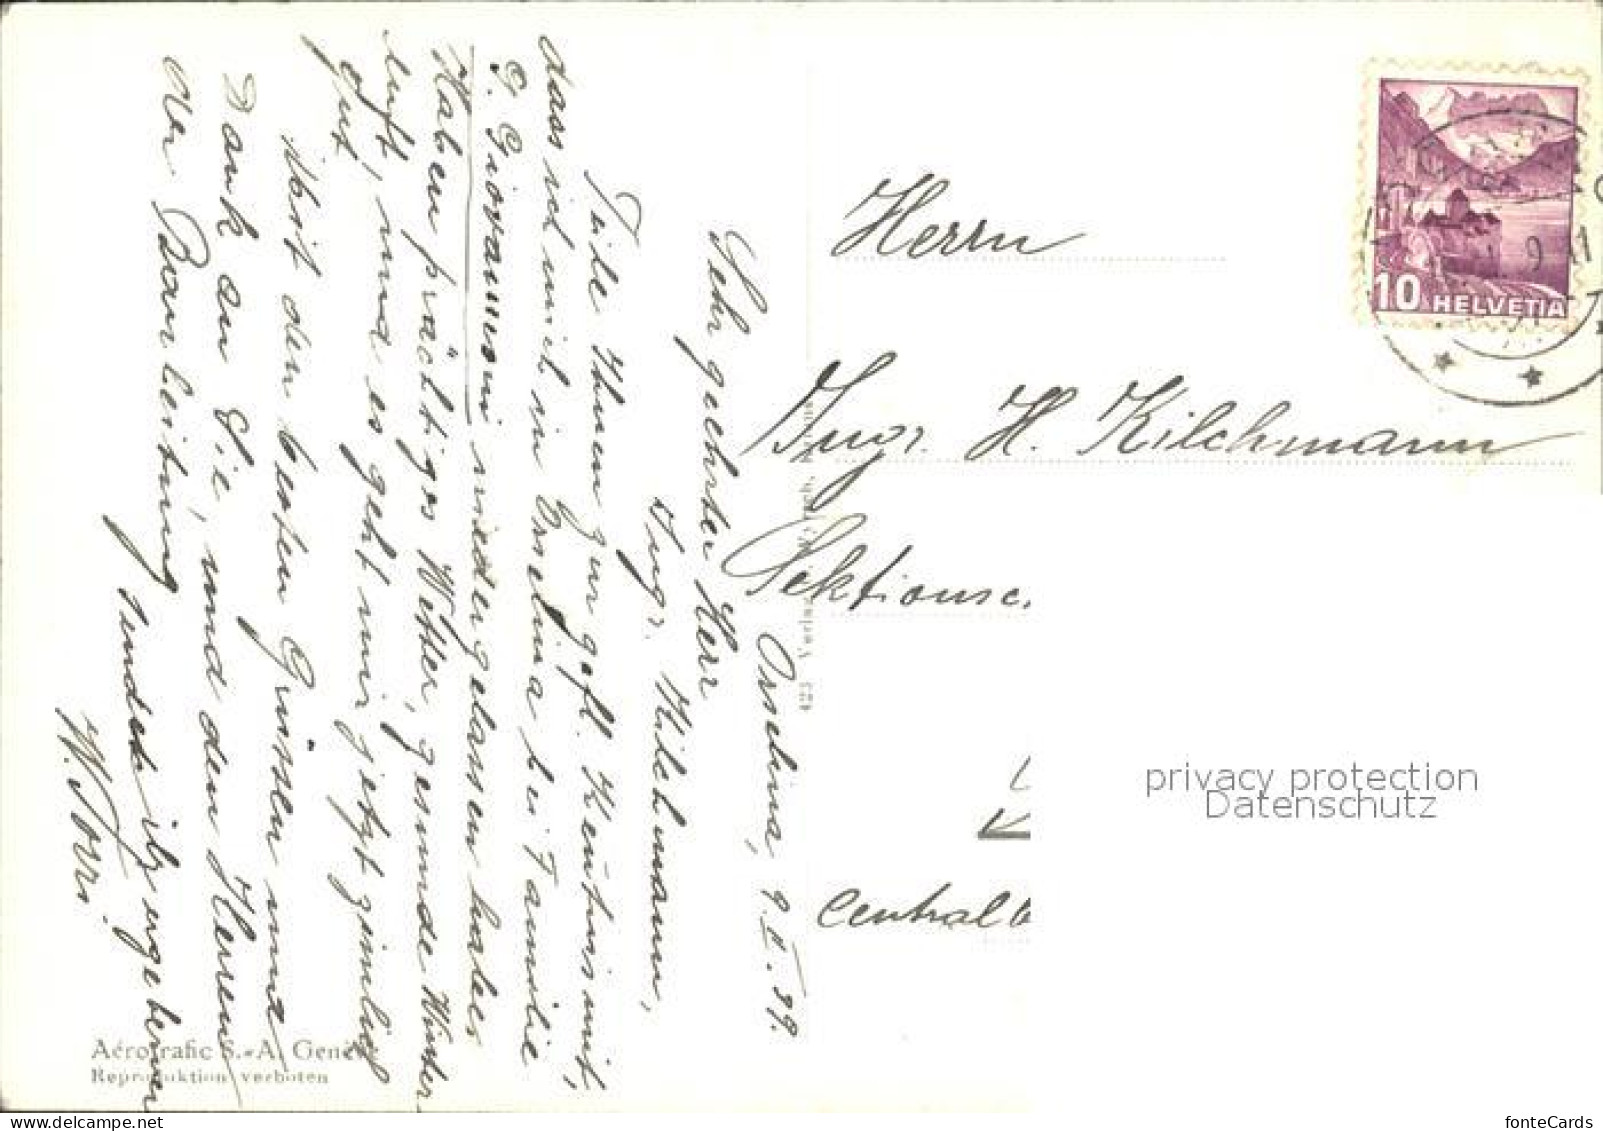 Osselina, 9.II.39.
Sehr geehrter Herr
Ingr. Kilchmann,
Teile Ihnen zur gefl. Kentnis mit,
dass ich mich in Orselina bei Familie
G. Giovannoni niedergelassen habe.
Haben prächtiges Wetter, gesunde Winter
luft, und es geht mir jetzt ziemlich
gut.
Mit den besten Grüssen und
Dank an Sie, und den Herren
der Bauleitung
W. Torr.
Herrn
Ingr. H. Kilchmann
Sektionsc
Central
10 HELVETIA
423 Verlag
Aérotrafic S.-A. Genève
Reproduktion verboten
privacy protection
Datenschutz
www.delcampe.net
fonteCards